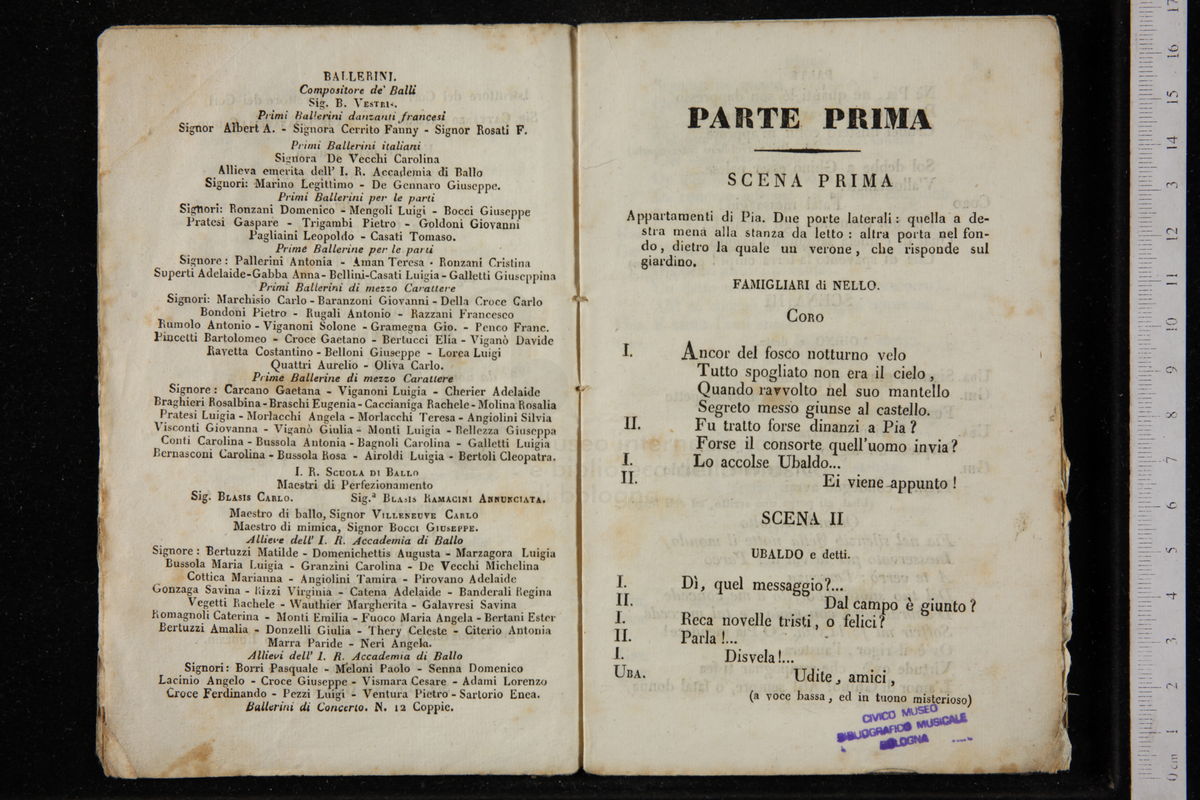 BALLERINI.
Compositore de' Balli
Sig. B. VESTRIS.
Primi Ballerini danzanti francesi
Signor Albert A. - Signora Cerrito Fanny - Signor Rosati F.
Primi Ballerini italiani
Signora De Vecchi Carolina
Allieva emerita dell' I. R. Accademia di Ballo
Signori: Marino Legittimo - De Gennaro Giuseppe.
Primi Ballerini per le parti
Signori: Ronzani Domenico - Mengoli Luigi - Bocci Giuseppe
Pratesi Gaspare - Trigambi Pietro - Goldoni Giovanni
Pagliaini Leopoldo - Casati Tomaso.
Prime Ballerine per le parti
Signore: Pallerini Antonia - Aman Teresa - Ronzani Cristina
Superti Adelaide-Gabba Anna-Bellini-Casati Luigia-Galletti Giuseppina
Primi Ballerini di mezzo Carattere
Signori: Marchisio Carlo - Baranzoni Giovanni - Della Croce Carlo
Bondoni Pietro - Rugali Antonio - Razzani Francesco
Rumolo Antonio - Viganoni Solone - Gramegna Gio. - Penco Franc.
Pincetti Bartolomeo - Croce Gaetano - Bertucci Elia - Viganò Davide
Ravetta Costantino - Belloni Giuseppe - Lorea Luigi
Quattri Aurelio - Oliva Carlo.
Prime Ballerine di mezzo Carattere
Signore: Carcano Gaetana - Viganoni Luigia - Cherier Adelaide
Braghieri Rosalbina-Braschi Eugenia-Caccianiga Rachele-Molina Rosalia
Pratesi Luigia - Morlacchi Angela - Morlacchi Teresa - Angiolini Silvia
Visconti Giovanna - Viganò Giulia - Monti Luigia - Bellezza Giuseppa
Conti Carolina - Bussola Antonia - Bagnoli Carolina - Galletti Luigia
Bernasconi Carolina - Bussola Rosa - Airoldi Luigia - Bertoli Cleopatra.
I. R. SCUOLA DI BALLO
Maestri di Perfezionamento
Sig. BLASIS CARLO. Sig.ª BLASIS RAMACINI ANNUNCIATA.
Maestro di ballo, Signor VILLENEUVE CARLO
Maestro di mimica, Signor BOCCI GIUSEPPE.
Allieve dell' I. R. Accademia di Ballo
Signore: Bertuzzi Matilde - Domenichettis Augusta - Marzagora Luigia
Bussola Maria Luigia - Granzini Carolina - De Vecchi Michelina
Cottica Marianna - Angiolini Tamira - Pirovano Adelaide
Gonzaga Savina - Rizzi Virginia - Catena Adelaide - Banderali Regina
Vegetti Rachele - Wauthier Margherita - Galavresi Savina
Romagnoli Caterina - Monti Emilia - Fuoco Maria Angela - Bertani Ester
Bertuzzi Amalia - Donzelli Giulia - Thery Celeste - Citerio Antonia
Marra Paride - Neri Angela.
Allievi dell' I. R. Accademia di Ballo
Signori: Borri Pasquale - Meloni Paolo - Senna Domenico
Lacinio Angelo - Croce Giuseppe - Vismara Cesare - Adami Lorenzo
Croce Ferdinando - Pezzi Luigi - Ventura Pietro - Sartorio Enea.
Ballerini di Concerto. N. 12 Coppie.
PARTE PRIMA
SCENA PRIMA
Appartamenti di Pia. Due porte laterali: quella a de-
stra mena alla stanza da letto: altra porta nel fon-
do, dietro la quale un verone, che risponde sul
giardino.
FAMIGLIARI di NELLO.
CORO
I. Ancor del fosco notturno velo
Tutto spogliato non era il cielo,
Quando ravvolto nel suo mantello
Segreto messo giunse al castello.
II. Fu tratto forse dinanzi a Pia?
Forse il consorte quell'uomo invia?
I. Lo accolse Ubaldo...
II. Ei viene appunto!
SCENA II
UBALDO e detti.
I. Dì, quel messaggio?...
II. Dal campo è giunto?
I. Reca novelle tristi, o felici?
II. Parla!...
I. Disvela!...
UBA. Udite, amici,
(a voce bassa, ed in tuono misterioso)
CIVICO MUSEO
BIBLIOGRAFICO MUSICALE
BOLOGNA
0 cm 1 2 3 4 5 6 7 8 9 10 11 12 13 14 15 16 17